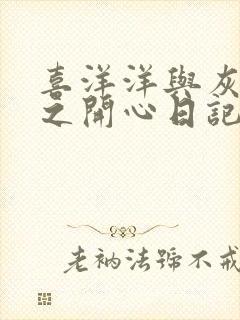 喜洋洋與灰
之開心日記
老衲法號不戒